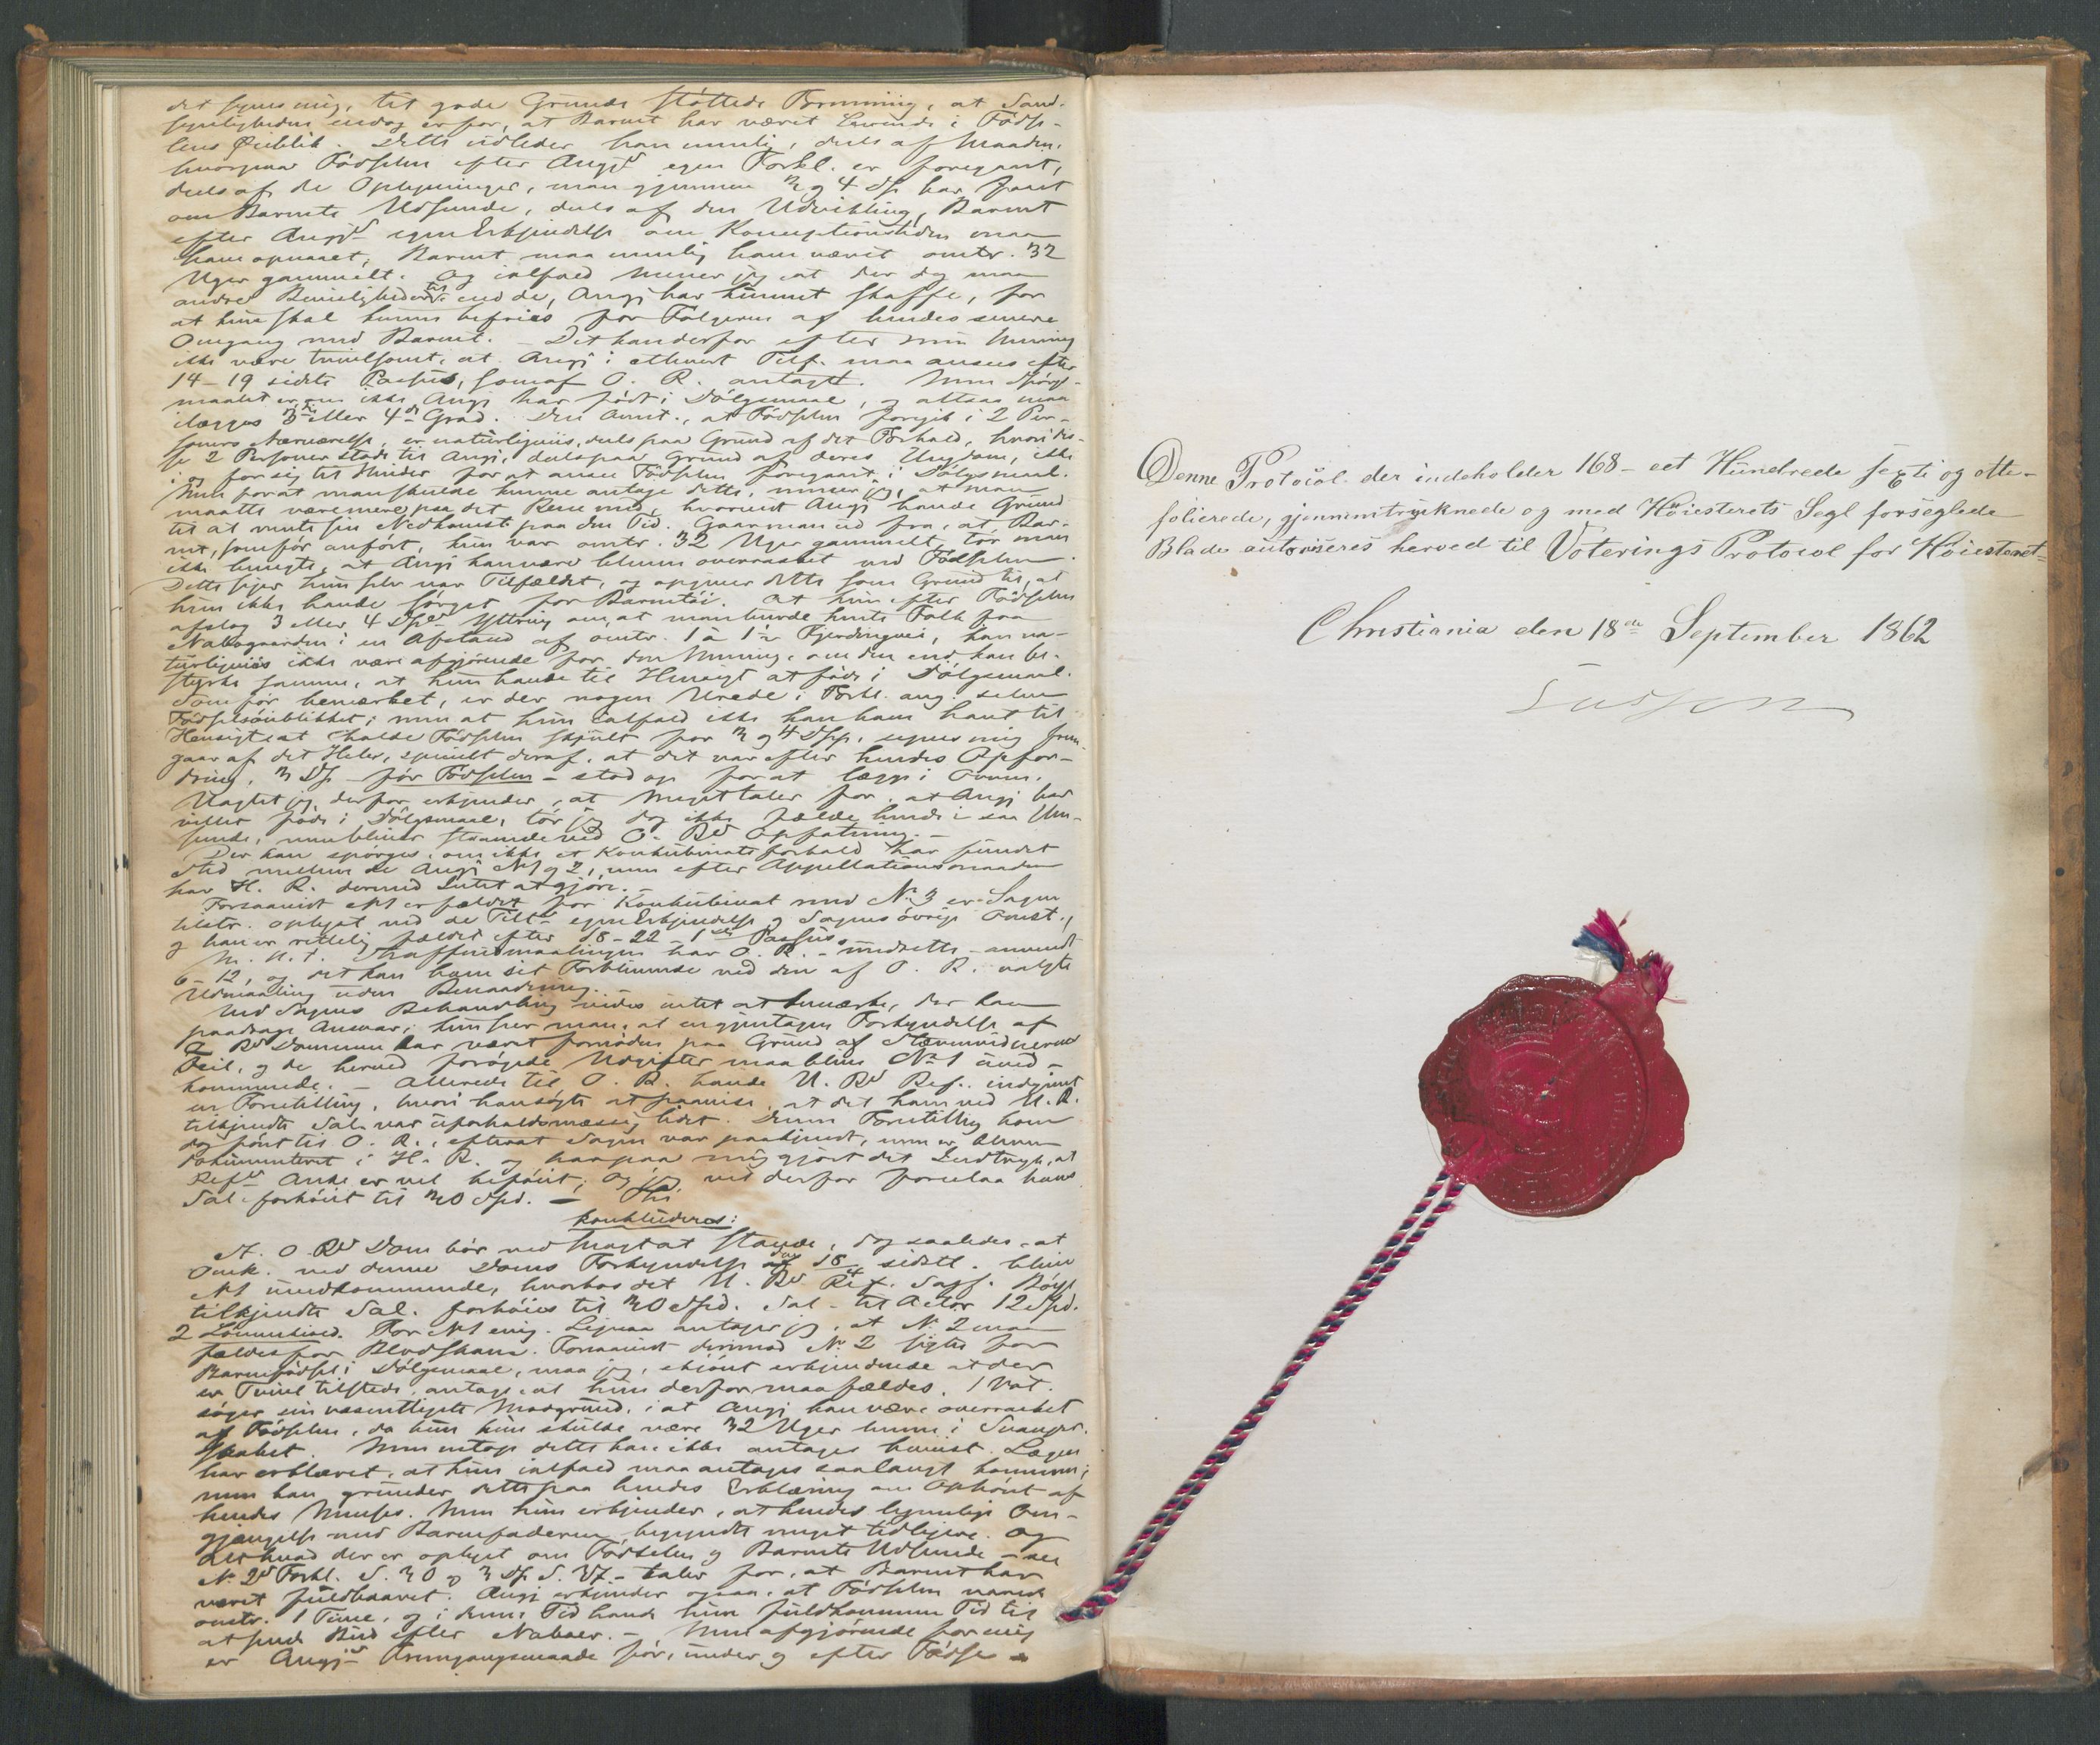 det synes mig, til gode Grunde støttede Formening, at Sand-
synligheden endog er for, at Barnet har været levende i Føds-
lens Øieblik. Dette udleder han nemlig, deels af Maaden,
hvorpaa Fødselen efter Angjs egen Forkl. er foregaaet,
deels af de Oplysninger, man gjennem 3 og 4 Dp. har faaet
om Barnets Udseende, deels af den Udvikling, Barnet
efter Angjs egen Erkjendelse om Konceptionstiden maa
have opnaaet; Barnet maa nemlig have været omtr. 32
Uger gammelt. Og ialfald mener jeg at der dog maa
andre Beviseligheder til end de, Angj har kunnet skaffe, for
at hun skal kunne befries for Følgerne af hendes senere
Omgang med Barnet. – Det kan derfor efter min Mening
ikke være tvivlsomt, at Angj i ethvert Tilf. maa ansees efter
14-19 sidste Passus, som af O. R. antaget. Men Spørgs-
maalet er om ikke Angj har født i Dølgsmaal, og altsaa maa
ilægges 3die eller 4de Grad. Den Omst., at Fødselen foregik i 2 Per-
soners Nærværelse, er naturligviis, deels paa Grund af det Forhold, hvori dis-
se 2 Personer stode til Angj, deels paa Grund af deres Ungdom, ikke
i og for sig til Hinder for at ansee Fødselen foregaaet i Dølgsmaal.
Men forat man skulde kunne antage dette, mener jeg, at man
maatte være mere paa det Rene med, hvorvidt Angj havde Grund
til at vente sin Nedkomst paa den Tid. Gaar man ud fra, at Bar-
net, som før anført, kun var omtr. 32 Uger gammelt, tør man
ikke benegte, at Angj kan være bleven overrasket ved Fødselen.
Dette siger hun selv var Tilfældet, og opgiver dette som Grund til, at
hun ikke havde sørget for Barnetøi. At hun efter Fødselen
afslog 3 eller 4 Dps Yttring om, at man burde hente Folk fra
Nabogaarden i en Afstand af omtr. 1 à 1½ Fjerdingvei, kan na-
turligviis ikke være afgjørende for den Mening, om den end kan be-
styrke samme, at hun havde til Hensigt at føde i Dølgsmaal.
Som før bemærket, er der nogen Urede i Forkl. ang. selve
Fødselsøieblikket; men at hun ialfald ikke kan have havt til
Hensigt at holde Fødselen skjult for 3 og 4 Dpp. synes mig frem-
gaar af det Hele, specielt deraf, at det var efter hendes Opfor-
dring, 3 Dp – før Fødselen – stod op for at lægge i Ovnen.
Uagtet jeg derfor erkjender, at Meget taler for, at Angj har
villet føde i Dølgsmaal, tør jeg dog ikke fælde hende i saa Hen-
seende, men bliver staaende ved O. Rs Opfatning. –
Der kan spørges, om ikke et Konkubinatsforhold har fundet
Sted mellem de Angj N1 og 2, men efter Appellationsmaaden
har H. R. dermed Intet at gjøre.
Forsaavidt N1 er fældet for Konkubinat med No 3 er Sagen
tilstr. oplyst ved de Tilts egen Erkjendelse og Sagens øvrige Omst.,
og han er rettelig fældet efter 18-22-1ste Passus.
M. H. t. Straffeudmaalingen har O. R. – indrette – anvendt
6-12, og det kan have sit Forblivende ved den af O. R. valgte
Udmaaling uden Benaadning.
Ved Sagens Behandling vides intet at bemærke, der kan
paadrage Ansvar; kun seer man, at en gjentagen Forkyndelse af
O. Rs Dommen har været fornøden paa Grund af Stævnevidnernes
Feil, og de herved forøgede Udgifter maa blive N1 uved-
kommende. – Allerede til O. R. havde U. Rs Ref. indgivet
en Forestilling, hvori han søgte at paavise, at det ham ved U. R.
tilkjendte Sal. var uforholdsmæssig lidet. Denne Forestilling kom
dog først til O. R., efterat Sagen var paakjendt, men er bleven
dokumenteret i H. R. og har paa mig gjort det Indtryk, at
Refs Anke er vel beføiet; og jeg vil derfor foreslaa hans
Sal. forhøiet til 30 Spd. – Thi
konkluderes:
At O. Rs Dom bør ved Magt at stande, dog saaledes, at
Omk. ved denne Doms Forkyndelse den 18/4 sidstl. blive
N1 uvedkommende, hvorhos det U. Rs Ref. Sagf. Bøyt
tilkjendte Sal. forhøies til 30 Spd. Sal. til Actor 12 Spd.
2 Lømmskiold. For N1 enig. Ligesaa antager jeg, at N. 2 maa
fældes for Blodskam. Forsaavidt derimod No 2 sigtes for
Barnefødsel i Dølgsmaal, maa jeg, skjønt erkjendende at der
er Tvivl tilstede, antage, at hun derfor maa fældes. 1 Vot.
søger sin væsentligste Modgrund, i at Angj kan være overrasket
af Fødselen, da hun kun skulde være 32 Uger henne i Svanger-
skabet. Men netop dette kan ikke antages beviist. Lægen
har erklæret, at hun ialfald maa antages saalangt kommen;
men han grunder dette paa hendes Erklæring om Ophøret af
hendes Menses. Men hun erkjender, at hendes legemlige Om-
gjængelse med Barnefaderen begyndte meget tidligere. Og
Alt hvad der er oplyst om Fødselen og Barnets Udseende – see
No 2s Forkl. S. 30 og 3 Dp. S. 37 – taler for, at Barnet har
været fuldbaaret. Angj erkjender ogsaa, at Fødselen varede
omtr. 1 Time, og i denne Tid havde hun fuldkommen Tid til
at sende Bud efter Naboer. – Men afgjørende for mig
er Angjs Fremgangsmaade før, under og efter Fødse-
Denne Protocol der indeholder 168 – eet Hundrede sexti og otte –
folierede, gjennemtrukne og med Høiesterets Segl forseglede
Blade autoriseres herved til Voterings Protocol for Høiesteret
Christiania den 18de September 1862
Lasson